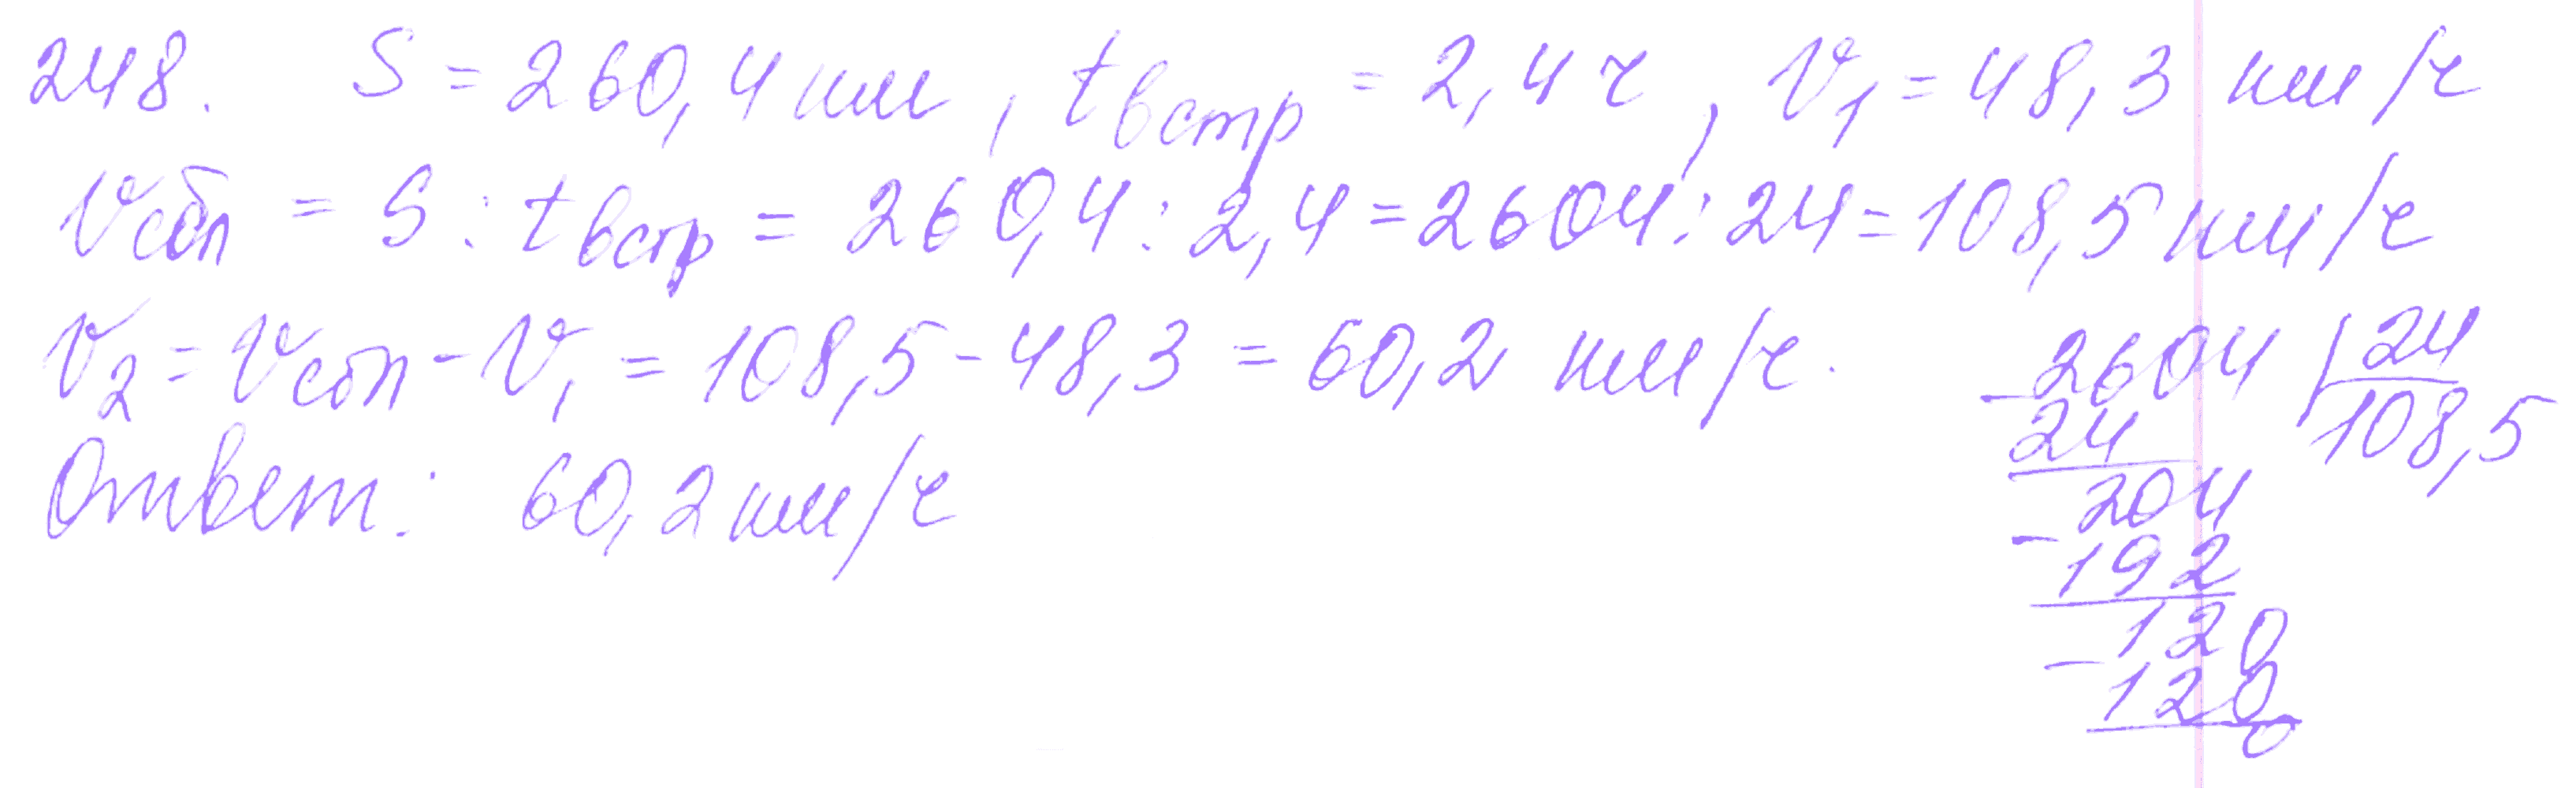 248. S = 260,4 км, tвстр = 2,4 ч, V1 = 48,3 км/ч
Vсбл = S : tвстр = 260,4 : 2,4 = 2604 : 24 = 108,5 км/ч
V2 = Vсбл - V1 = 108,5 - 48,3 = 60,2 км/ч.
Ответ: 60,2 км/ч
- 2604 | 24
24 108,5
- 204
192
- 120
120
0